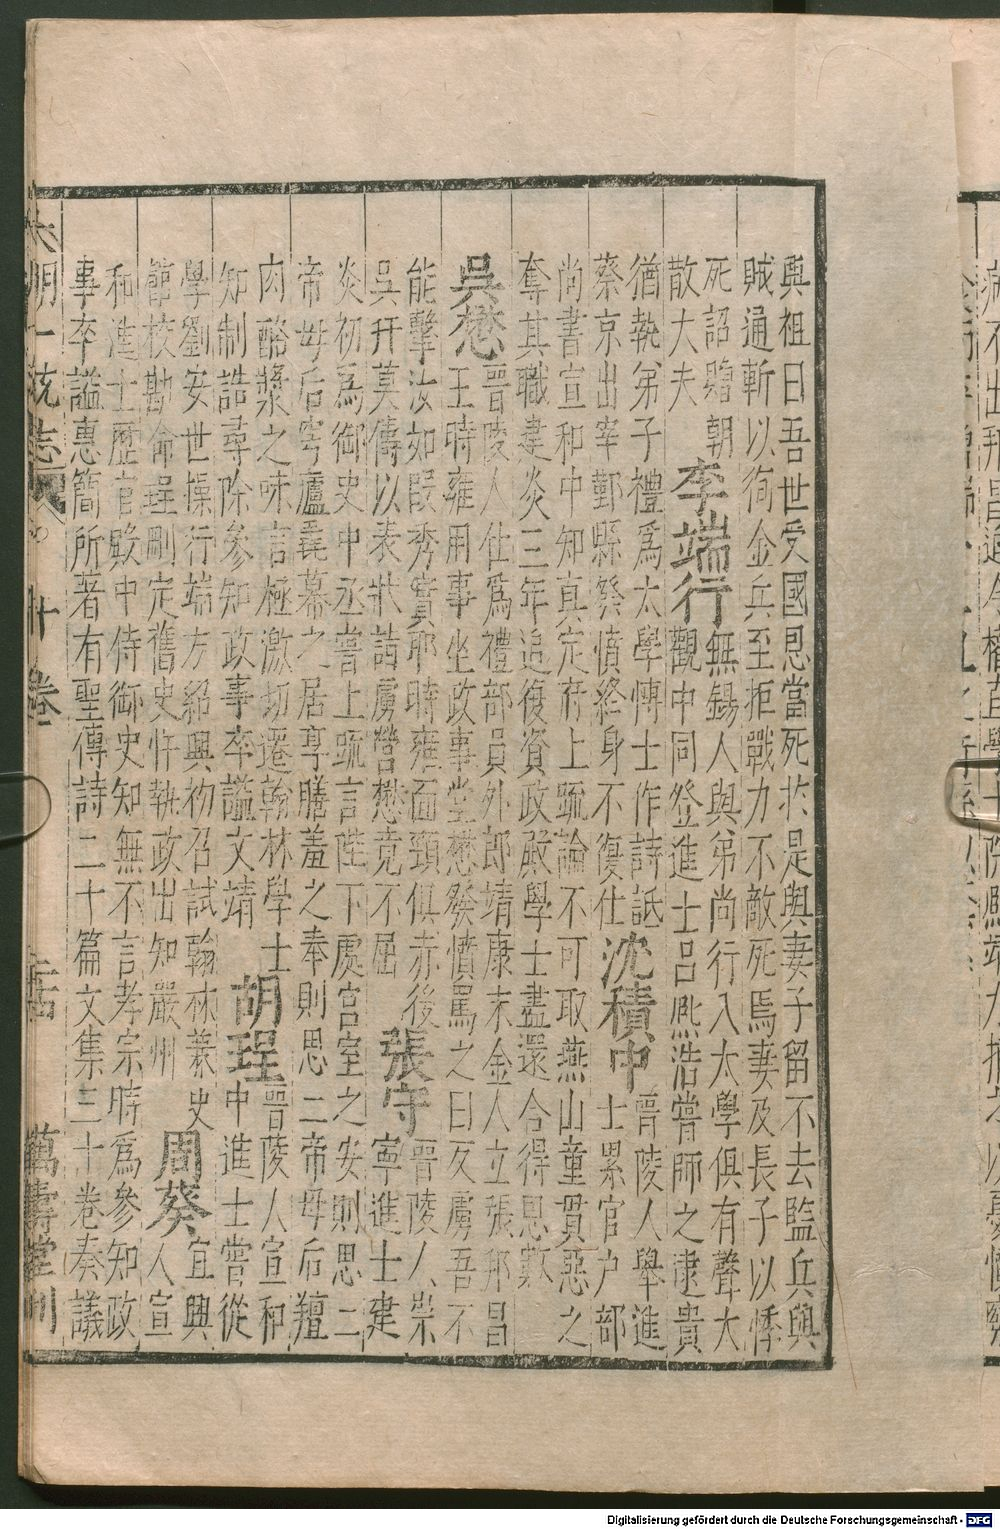 與祖曰吾世受國恩當死於是與妻子留不去監兵與
賊通斬以徇金兵至拒戰力不敵死焉妻及長子以悸
死詔贈朝
散大夫
李端行
無錫人與弟尚行入太學俱有聲大
觀中同登進士呂熈浩嘗師之逮貴
猶執弟子禮爲太學博士作詩詆
蔡京出宰鄞縣發憤終身不復仕
沈積中
晉陵人舉進
士累官户部
尚書宣和中知真定府上䟽論不可取燕山童貫惡之
奪其職建炎三年追復資政殿學士盡還合得恩數
吳懋
晉陵人仕爲禮部員外郎靖康末金人立張邦昌
王時雍用事坐政事堂懋發憤罵之曰反虜吾不
能擊汝如叚秀實耶時雍面頸俱赤後
吳幵莫儔以表狀詰虜營懋竟不屈
張守
晉陵人崇
寧進士建
炎初爲御史中丞嘗上䟽言陛下處宮室之安則思二
帝母后穹廬毳幕之居享膳羞之奉則思二帝母后羶
肉酪漿之味言極激切遷翰林學士
知制誥尋除參知政事卒謚文靖
胡珵
晉陵人宣和
中進士嘗從
學劉安世操行端方紹興初召試翰林兼史
舘校勘命珵刪定舊史忤執政出知嚴州
周葵
宜興
人宣
和進士歷官殿中侍御史知無不言孝宗時爲參知政
事卒謚惠簡所著有聖傳詩二十篇文集三十卷奏議
大明一統志
十卷
萬壽堂刊
Digitalisierung gefördert durch die Deutsche Forschungsgemeinschaft - DFG